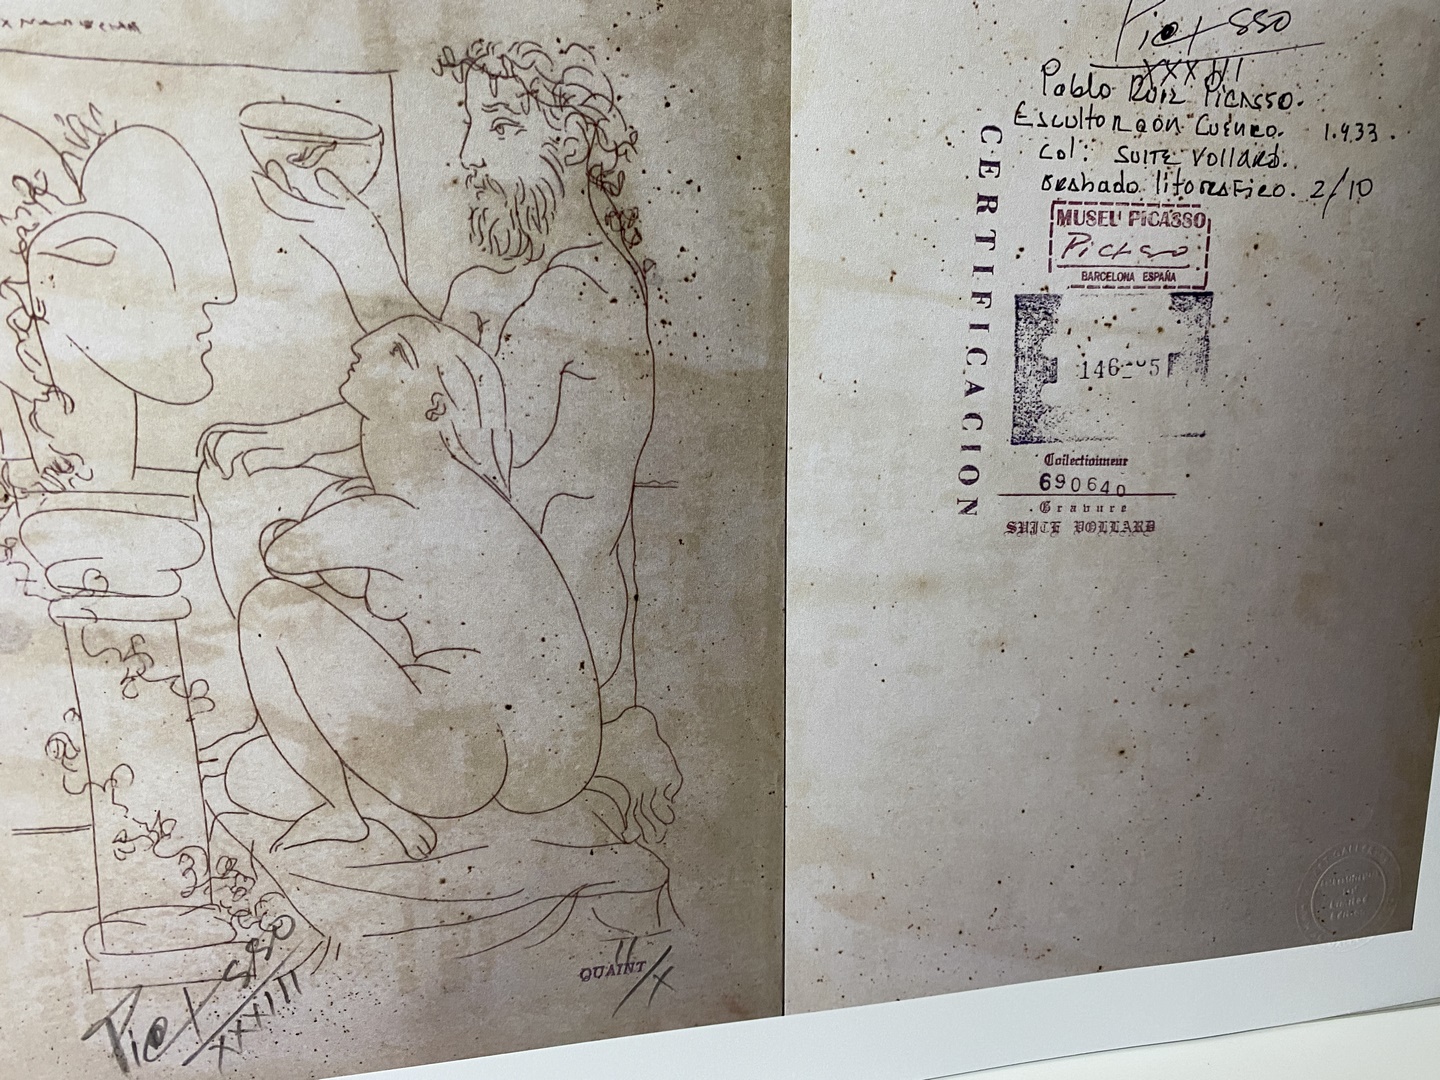 Picasso
XXXIII
QUAINT
II/X
Picasso
XXXIII
Pablo Ruiz Picasso.
Escultor con Cuenco. 1.933.
Col: SUITE Vollard.
Grabado litografico. 2/10
CERTIFICACION
MUSEU PICASSO
Picasso
BARCELONA ESPAÑA
Collectionneur
690640
Gravure
SUITE VOLLARD